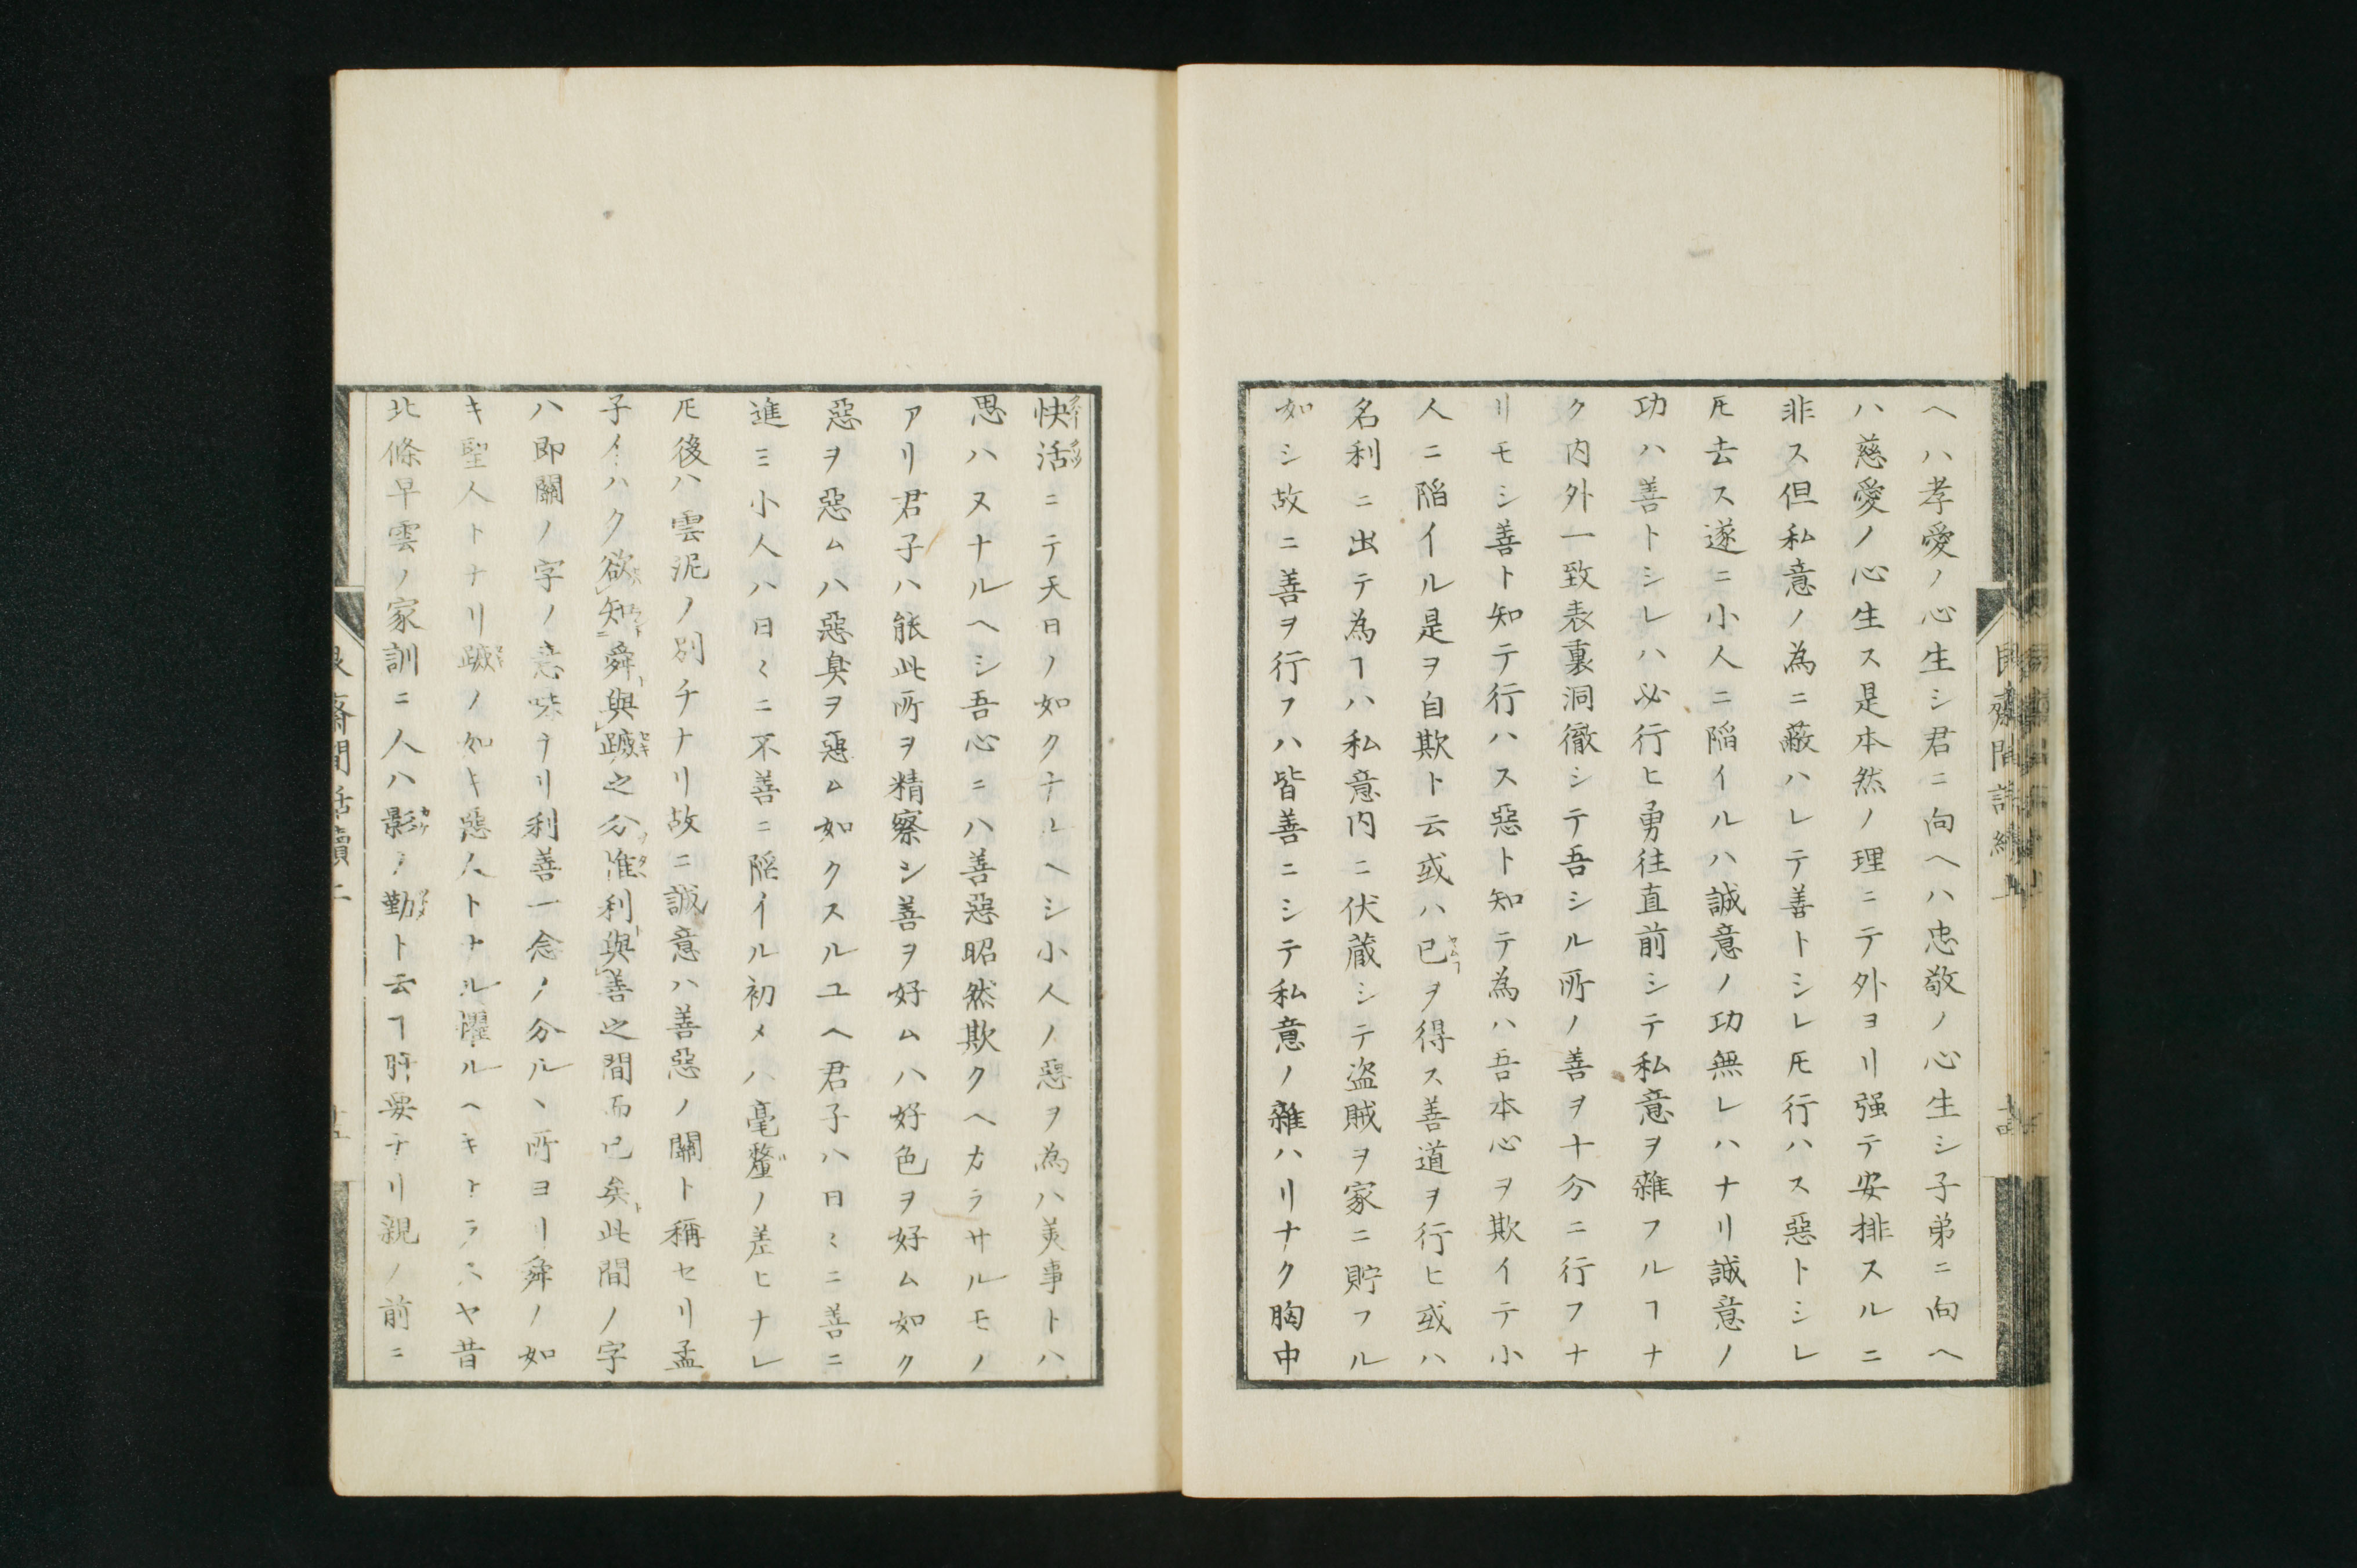 ヘハ孝愛ノ心生シ君ニ向ヘハ忠敬ノ心生シ子弟ニ向ヘ
ハ慈愛ノ心生ス是本然ノ理ニテ外ヨリ强テ安排スルニ
非ス但私意ノ為ニ蔽ハレテ善トシレ𪜈行ハス惡トシレ
𪜈去ス遂ニ小人ニ陥イルハ誠意ノ功無レハナリ誠意ノ
功ハ善トシレハ必行ヒ勇往直前シテ私意ヲ雜フルヿナ
ク内外一致表裏洞徹シテ吾シル所ノ善ヲ十分ニ行フナ
リモシ善ト知テ行ハス惡ト知テ為ハ吾本心ヲ欺イテ小
人ニ陥イル是ヲ自欺ト云或ハ已ヲ得ス善道ヲ行ヒ或ハ
名利ニ出テ為ヿハ私意内ニ伏蔵シテ盗賊ヲ家ニ貯フル
如シ故ニ善ヲ行フハ皆善ニシテ私意ノ雜ハリナク胸中
快活ニテ天日ノ如クナルヘシ小人ノ惡ヲ為ハ美事トハ
思ハヌナルヘシ吾心ニハ善惡昭然欺クヘカラサルモノ
アリ君子ハ能此所ヲ精察シ善ヲ好ムハ好色ヲ好ム如ク
惡ヲ惡ムハ惡臭ヲ惡ム如クスルユヘ君子ハ日〻ニ善ニ
進ミ小人ハ日〻ニ不善ニ陥イル初メハ毫釐ノ差ヒナレ
𪜈後ハ雲泥ノ別チナリ故ニ誠意ハ善惡ノ關ト稱セリ孟
子イハク欲知舜與蹠之分惟利與善之間而已矣此間ノ字
ハ即關ノ字ノ意味ナリ利善一念ノ分ルヽ所ヨリ舜ノ如
キ聖人トナリ蹠ノ如キ惡人トナル懼ルヘキトラスヤ昔
北條早雲ノ家訓ニ人ハ影ノ勤ト云ヿ肝要ナリ親ノ前ニ
艮齋間話續上